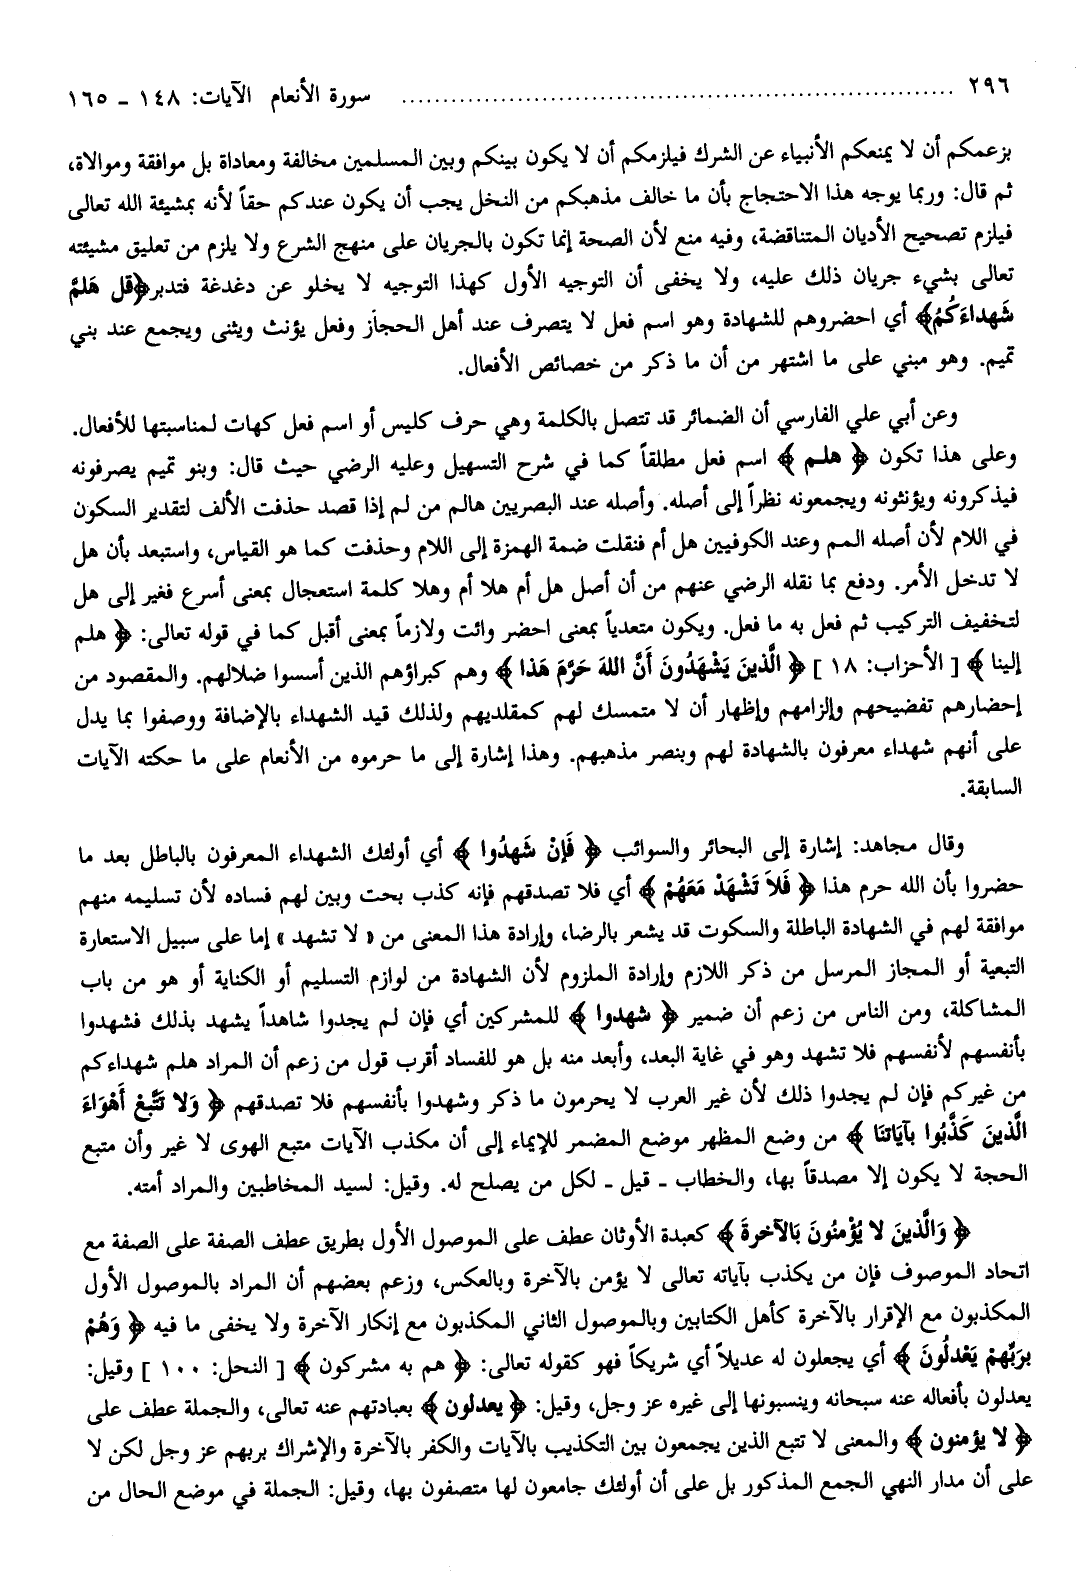 ٢٩٦ ........................................................ سورة الأنعام الآيات: ١٤٨ ـ ١٦٥
بزعمكم أن لا يمنعكم الأنبياء عن الشرك فيلزمكم أن لا يكون بينكم وبين المسلمين مخالفة ومعاداة بل موافقة وموالاة،
ثم قال: وربما يوجه هذا الاحتجاج بأن ما خالف مذهبكم من النحل يجب أن يكون عندكم حقاً لأنه بمشيئة الله تعالى
فيلزم تصحيح الأديان المتناقضة، وفيه منع لأن الصحة إنما تكون بالجريان على منهج الشرع ولا يلزم من تعليق مشيئته
تعالى بشيء جريان ذلك عليه، ولا يخفى أن التوجيه الأول كهذا التوجيه لا يخلو عن دغدغة فتدبر﴿قل هَلمَّ
شَهداءَكُمُ﴾ أي احضروهم للشهادة وهو اسم فعل لا يتصرف عند أهل الحجاز وفعل يؤنث ويثنى ويجمع عند بني
تميم. وهو مبني على ما اشتهر من أن ما ذكر من خصائص الأفعال.
وعن أبي علي الفارسي أن الضمائر قد تتصل بالكلمة وهي حرف كليس أو اسم فعل كهات لمناسبتها للأفعال.
وعلى هذا تكون ﴿ هلم ﴾ اسم فعل مطلقاً كما في شرح التسهيل وعليه الرضي حيث قال: وبنو تميم يصرفونه
فيذكرونه ويؤنثونه ويجمعونه نظراً إلى أصله. وأصله عند البصريين هالم من لم إذا قصد حذفت الألف لتقدير السكون
في اللام لأن أصله المم وعند الكوفيين هل أم فنقلت ضمة الهمزة إلى اللام وحذفت كما هو القياس، واستبعد بأن هل
لا تدخل الأمر. ودفع بما نقله الرضي عنهم من أن أصل هل أم هلا أم وهلا كلمة استعجال بمعنى أسرع فغير إلى هل
لتخفيف التركيب ثم فعل به ما فعل. ويكون متعدياً بمعنى احضر وائت ولازماً بمعنى أقبل كما في قوله تعالى: ﴿ هلم
إلينا ﴾ [ الأحزاب: ١٨ ] ﴿ الَّذينَ يَشْهَدُونَ أَنَّ اللهَ حَرَّمَ هَذا ﴾ وهم كبراؤهم الذين أسسوا ضلالهم. والمقصود من
إحضارهم تفضيحهم وإلزامهم وإظهار أن لا متمسك لهم كمقلديهم ولذلك قيد الشهداء بالإضافة ووصفوا بما يدل
على أنهم شهداء معرفون بالشهادة لهم وبنصر مذهبهم. وهذا إشارة إلى ما حرموه من الأنعام على ما حكته الآيات
السابقة.
وقال مجاهد: إشارة إلى البحائر والسوائب ﴿ فَإِنْ شَهِدُوا ﴾ أي أولئك الشهداء المعرفون بالباطل بعد ما
حضروا بأن الله حرم هذا ﴿ فَلاَ تَشْهَدْ مَعَهُمْ ﴾ أي فلا تصدقهم فإنه كذب بحت وبين لهم فساده لأن تسليمه منهم
موافقة لهم في الشهادة الباطلة والسكوت قد يشعر بالرضا، وإرادة هذا المعنى من « لا تشهد » إما على سبيل الاستعارة
التبعية أو المجاز المرسل من ذكر اللازم وإرادة الملزوم لأن الشهادة من لوازم التسليم أو الكناية أو هو من باب
المشاكلة، ومن الناس من زعم أن ضمير ﴿ شهدوا ﴾ للمشركين أي فإن لم يجدوا شاهداً يشهد بذلك فشهدوا
بأنفسهم لأنفسهم فلا تشهد وهو في غاية البعد، وأبعد منه بل هو للفساد أقرب قول من زعم أن المراد هلم شهداءكم
من غيركم فإن لم يجدوا ذلك لأن غير العرب لا يحرمون ما ذكر وشهدوا بأنفسهم فلا تصدقهم ﴿ وَلا تَتَّبعْ أَهْوَاءَ
الَّذينَ كَذَّبُوا بآيَاتنَا ﴾ من وضع المظهر موضع المضمر للإيماء إلى أن مكذب الآيات متبع الهوى لا غير وأن متبع
الحجة لا يكون إلا مصدقاً بها، والخطاب ـ قيل ـ لكل من يصلح له. وقيل: لسيد المخاطبين والمراد أمته.
﴿ وَالَّذينَ لا يُؤْمنُونَ بَالآخرةَ ﴾ كعبدة الأوثان عطف على الموصول الأول بطريق عطف الصفة على الصفة مع
اتحاد الموصوف فإن من يكذب بآياته تعالى لا يؤمن بالآخرة وبالعكس، وزعم بعضهم أن المراد بالموصول الأول
المكذبون مع الإقرار بالآخرة كأهل الكتابين وبالموصول الثاني المكذبون مع إنكار الآخرة ولا يخفى ما فيه ﴿ وَهُمْ
برَبِّهمْ يَعْدلُونَ ﴾ أي يجعلون له عديلاً أي شريكاً فهو كقوله تعالى: ﴿ هم به مشركون ﴾ [ النحل: ١٠٠ ] وقيل:
يعدلون بأفعاله عنه سبحانه وينسبونها إلى غيره عز وجل، وقيل: ﴿ يعدلون ﴾ بعبادتهم عنه تعالى، والجملة عطف على
﴿ لا يؤمنون ﴾ والمعنى لا تتبع الذين يجمعون بين التكذيب بالآيات والكفر بالآخرة والإشراك بربهم عز وجل لكن لا
على أن مدار النهي الجمع المذكور بل على أن أولئك جامعون لها متصفون بها، وقيل: الجملة في موضع الحال من